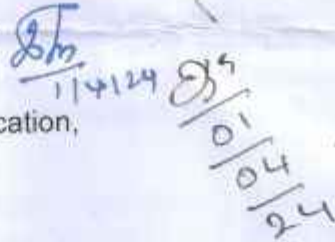 1/4/24
cation,
01/04/24